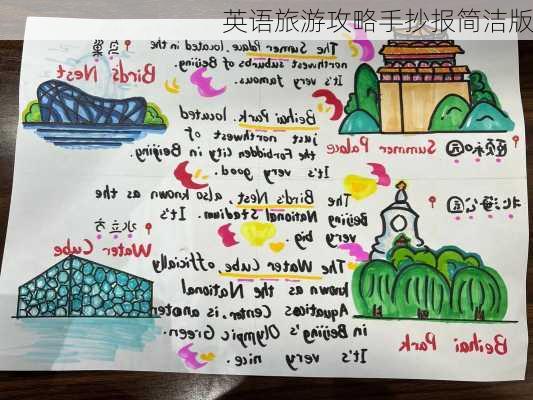 英语旅游攻略手抄报简洁版
鸟巢
Bird's Nest
The Sumer Palace, located in the
northwest suburbs of Beijing.
It's very famous.
颐和园
Summer Palace
Beihai Park, located
just northwest of
the Forbidden City in Beijing
It's very good.
The Bird's Nest, also known as the
Beijing National Stadium. It's
very big.
北海公园
Beihai Park
水立方
Water Cube
The Water Cube officially
known as the National
Aquatics Center, is
in Beijing's Olympic Green.
It's very nice.